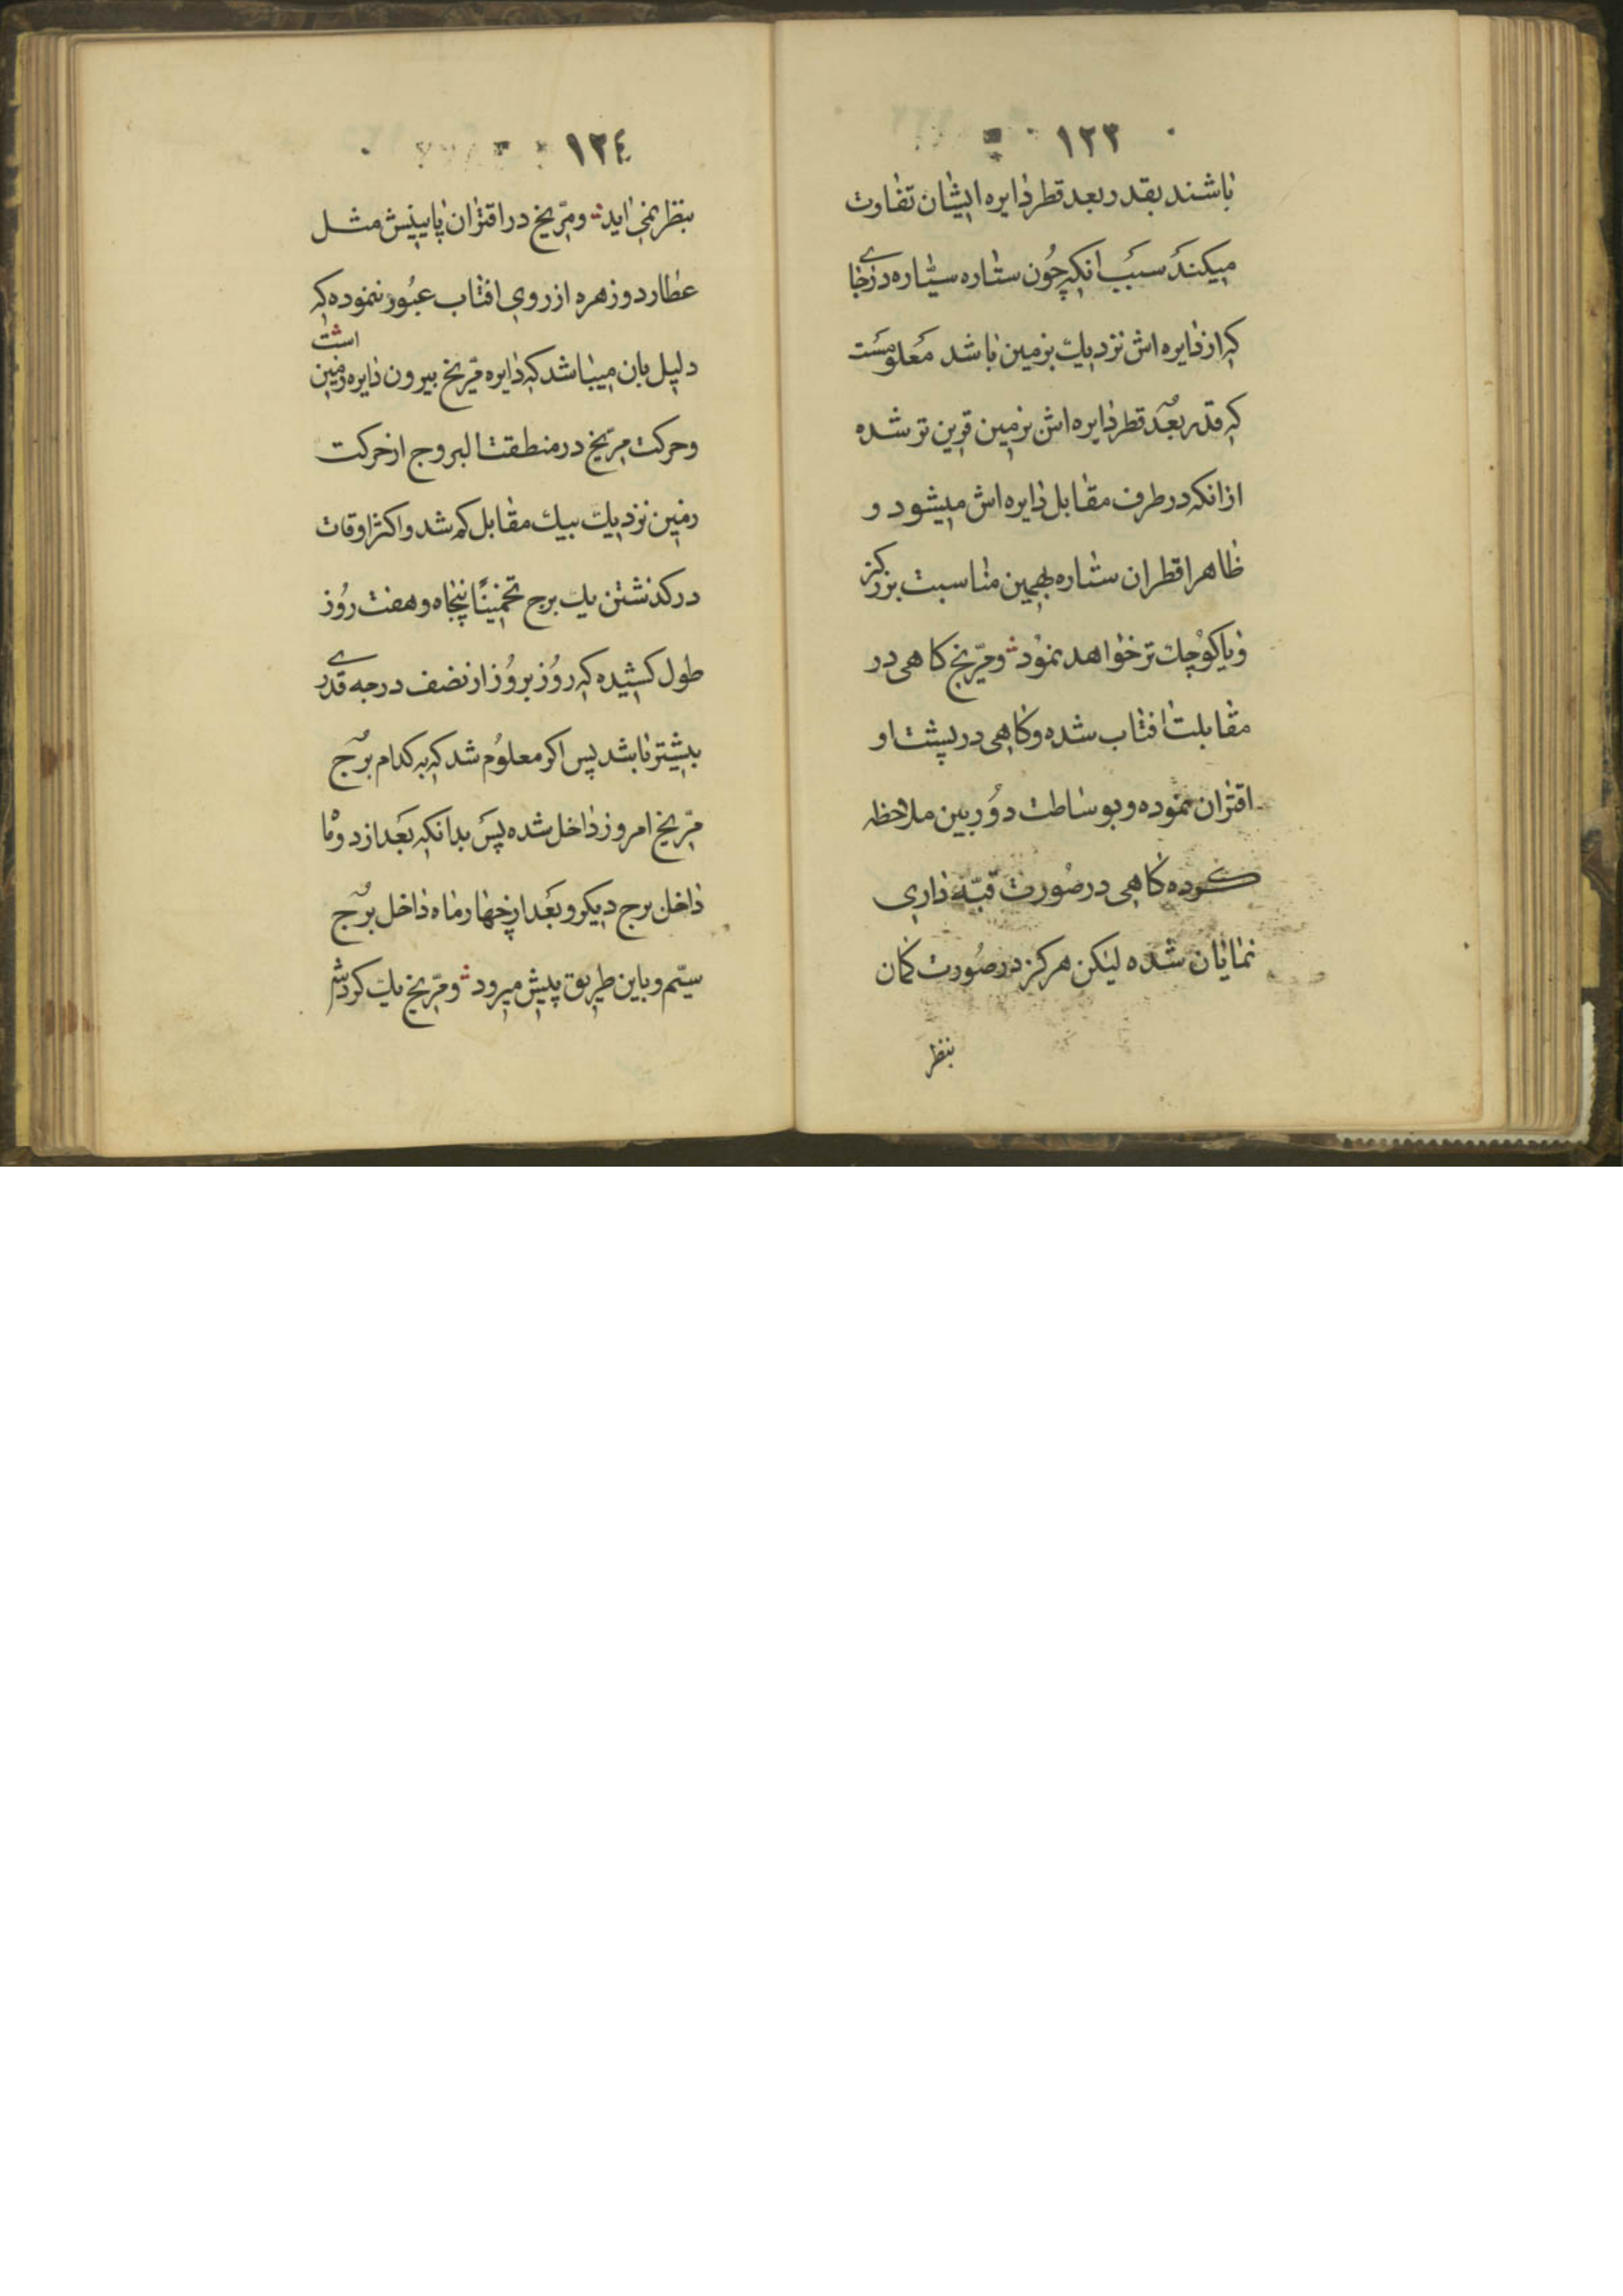 ١٢٣
باشند بقدر بعد قطر دایره ایشان تفاوت
میکند سبب انکه چون ستاره سیّاره در جای
که از دایره اش نزدیك بزمین باشد معلومست
که قدر بعد قطر دایره اش بزمین قرین تر شده
از انکه در طرف مقابل دایره اش میشود و
ظاهر اقطران ستاره بهمین مناسبت بزرکتر
و یا کوچك تر خواهد نمود و مرّیخ کاهی در
مقابلت افتاب شده و کاهی در پشت او
اقتران نموده و بوساطت دوربین ملاحظه
کرده کاهی در صورت قبّه داری
نمایان شده لیکن هرکز در صورت کمان
بنظر
١٢٤
بنظر نمی اید و مرّیخ در اقتران پایینیش مثل
عطارد و زهره از روی افتاب عبور ننموده که
دلیل بان میباشد که دایره مرّیخ بیرون دایره زمین است
و حرکت مرّیخ در منطقت البروج از حرکت
زمین نزدیك بیك مقابل کم شد و اکثر اوقات
در کذشتن یك برج تخمینًا پنجاه و هفت روز
طول کشیده که روز بروز از نصف درجه قدری
بیشتر باشد پس اکر معلوم شد که به کدام برج
مرّیخ امروز داخل شده پس بدانکه بعد از دو ما
داخل برج دیکر و بعد از چهار ماه داخل برج
سیّم و باین طریق پیش میرود و مرّیخ یك کردش